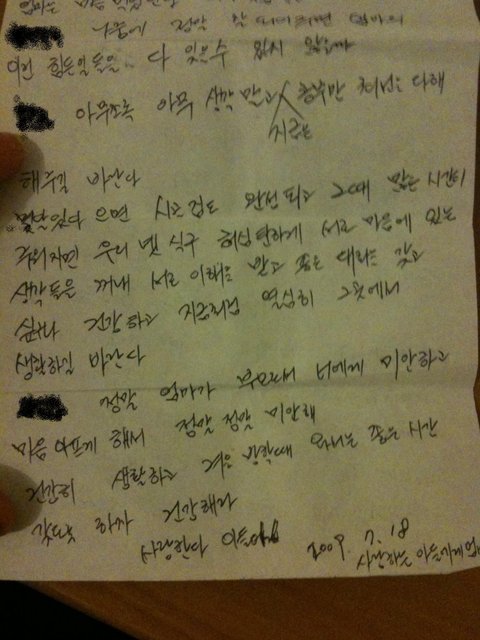 나중에 정말 잘 되려면 엄마의
이런 힘든일들을 다 잊을수 있지 않을까
아무쪼록 아무 생각 말고 지금은 공부만 최선을 다해
해주길 바란다
몇달있다 오면 시로 검도 완성되고 그때 많은 시간이
주워지면 우리 넷 식구 허심탄하게 서로 마음에 있는
생각들을 꺼내 서로 이해하는 좋은 대화를 갖고
싶구나 건강하고 지금처럼 열심히 그곳에서
생활하길 바란다
정말 엄마가 부모로서 너에게 미안하고
마음 아프게 해서 정말 정말 미안해
건강히 생활하고 겨울 방학때 와서는 좋은 시간
갖도록 하자 건강해라
사랑한다 아들아
2009. 7. 18
사랑하는 아들에게 엄마